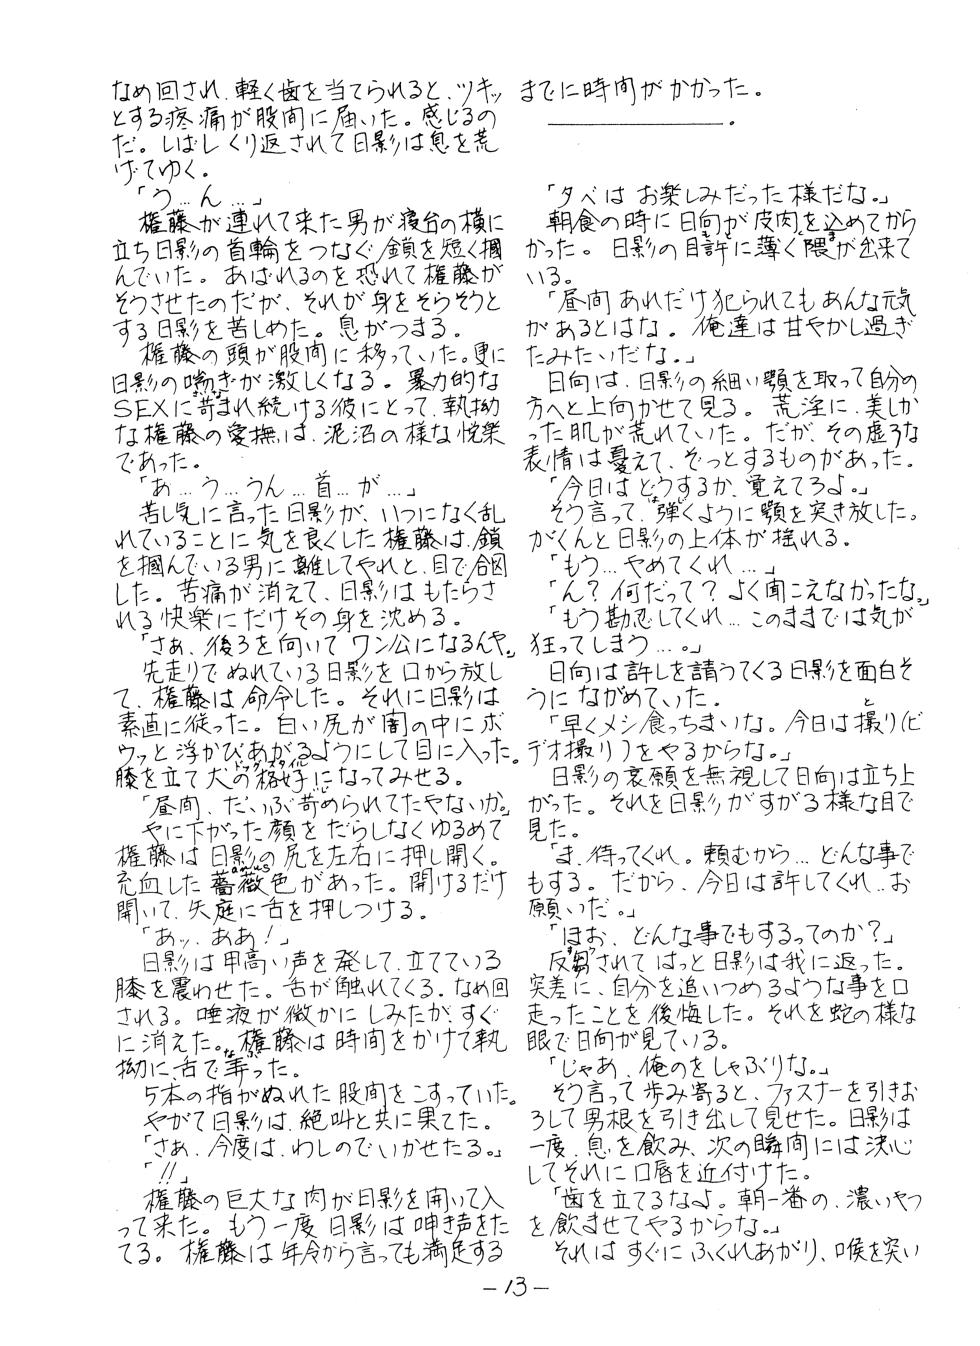 なめ回され、軽く歯を当てられると、ツキッ
とする疼痛が股間に届いた。感じるの
だ。しばしくり返されて日影は息を荒
げてゆく。
「う…ん…」
権藤が連れて来た男が寝台の横に
立ち日影の首輪をつなぐ鎖を短く掴
んでいた。あばれるのを恐れて権藤が
そうさせたのだが、それが身をそらそうと
する日影を苦しめた。息がつまる。
権藤の頭が股間に移っていた。更に
日影の喘ぎが激しくなる。暴力的な
SEXに苛まれ続ける彼にとって、執拗
な権藤の愛撫は、泥沼の様な悦楽
であった。
「あ…う…うん…首…が…」
苦し気に言った日影が、いつになく乱
れていることに気を良くした権藤は、鎖
を掴んでいる男に離してやれと、目で合図
した。苦痛が消えて、日影はもたらさ
れる快楽にだけその身を沈める。
「さあ、後ろを向いてワン公になるんや。」
先走りでぬれている日影を口から放し
て、権藤は命令した。それに日影は
素直に従った。白い尻が闇の中にボ
ウッと浮かびあがるようにして目に入った。
膝を立て犬の格好になってみせる。
ドッグスタイル
「昼間、だいぶ苛められてたやないか。」
やに下がった顔をだらしなくゆるめて
権藤は日影の尻を左右に押し開く。
充血した薔薇色があった。開けるだけ
anus
開いて、矢庭に舌を押しつける。
「あッ、ああ！」
日影は甲高い声を発して、立てている
膝を震わせた。舌が触れてくる。なめ回
される。唾液が微かにしみたが、すぐ
に消えた。権藤は時間をかけて執
拗に、舌で弄った。
5本の指がぬれた股間をこすっていた。
やがて日影は、絶叫と共に果てた。
「さあ、今度は、わしのでいかせたる。」
「!!」
権藤の巨大な肉が日影を開いて入
って来た。もう一度日影は呻き声をた
てる。権藤は年令から言っても満足する
までに時間がかかった。
「夕べはお楽しみだった様だな。」
朝食の時に日向が皮肉を込めてから
かった。日影の目許に薄く隈が出来て
いる。
「昼間あれだけ犯られてもあんな元気
があるとはな。俺達は甘やかし過ぎ
たみたいだな。」
日向は、日影の細い顎を取って自分の
方へと上向かせて見る。荒淫に、美しか
った肌が荒れていた。だが、その虚ろな
表情は憂えて、ぞっとするものがあった。
「今日はどうするか、覚えてろよ。」
そう言って、弾くように顎を突き放した。
がくんと日影の上体が揺れる。
「もう…やめてくれ…」
「ん？何だって？よく聞こえなかったな。」
「もう勘忍してくれ…このままでは気が
狂ってしまう…。」
日向は許しを請うてくる日影を面白そ
うにながめていた。
「早くメシ食っちまいな。今日は撮り(ビ
デオ撮り)をやるからな。」
日影の哀願を無視して日向は立ち上
がった。それを日影がすがる様な目で
見た。
「ま、待ってくれ。頼むから…どんな事で
もする。だから、今日は許してくれ…お
願いだ。」
「ほお、どんな事でもするってのか？」
反芻されてはっと日影は我に返った。
突差に、自分を追いつめるような事を口
走ったことを後悔した。それを蛇の様な
眼で日向が見ている。
「じゃあ、俺のをしゃぶりな。」
そう言って歩み寄ると、ファスナーを引きお
ろして男根を引き出して見せた。日影は
一度、息を飲み、次の瞬間には決心
してそれに口唇を近付けた。
「歯を立てるなよ。朝一番の、濃いやつ
を飲ませてやるからな。」
それはすぐにふくれあがり、喉を突い
－13－